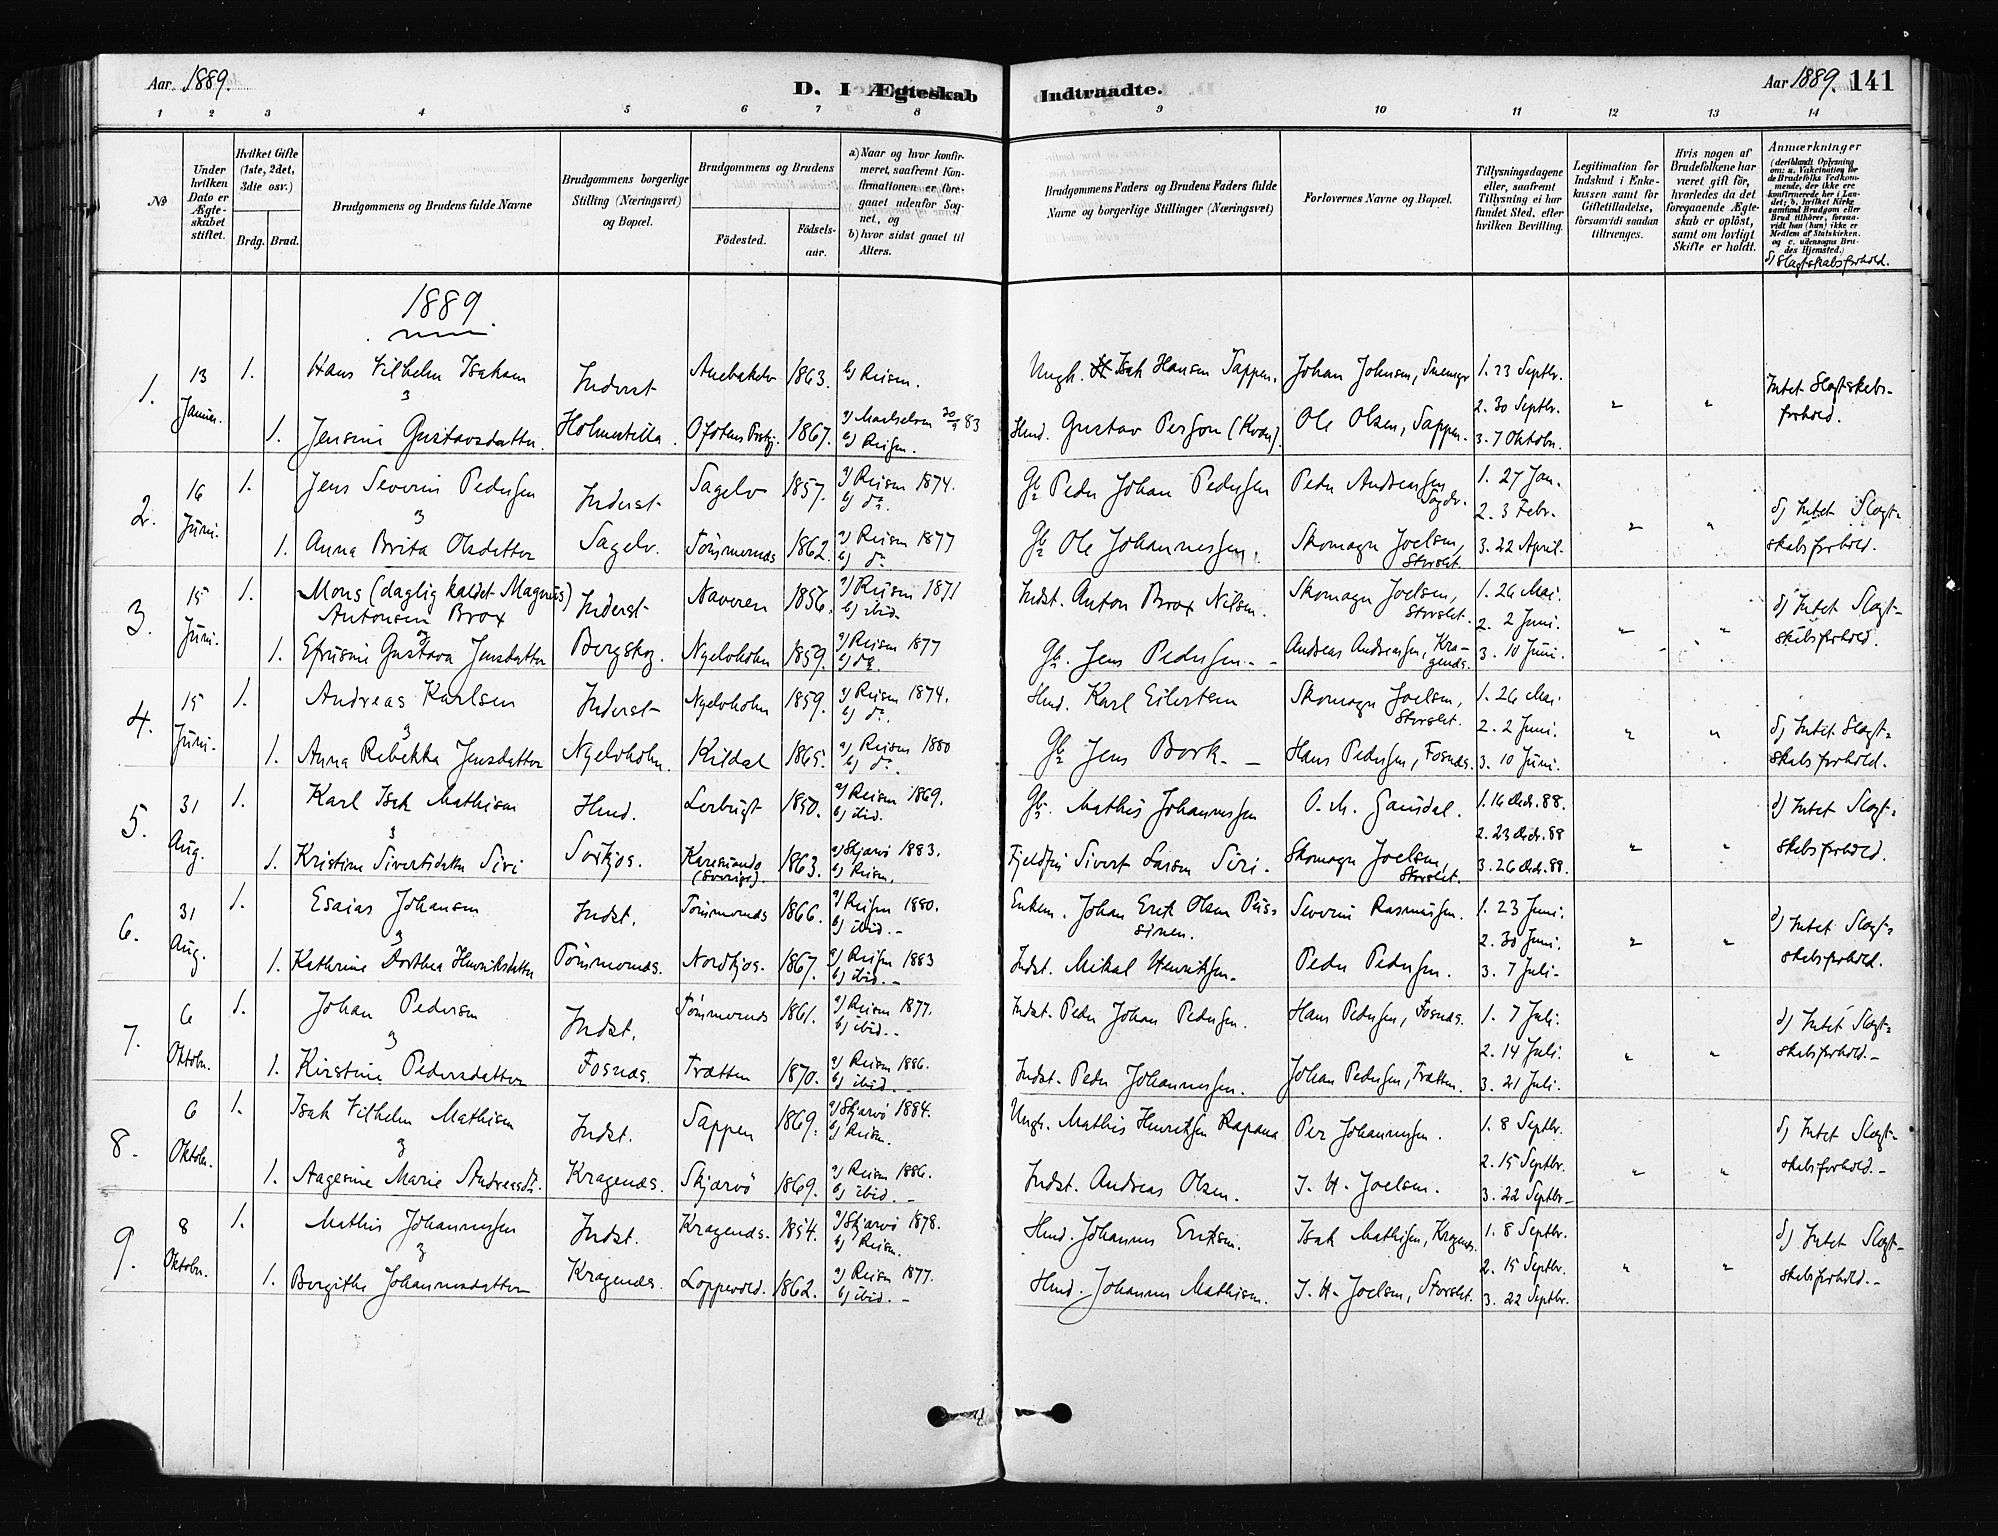 Aar 1889.
D. I Ægteskab Indtraadte.
Aar 1889. 141
1 2 3 4 5 6 7 8 9 10 11 12 13 14
No
Under hvilken Dato er Ægteskabet stiftet.
Hvilket Gifte (1ste, 2det, 3die osv.)
Brdg. Brud.
Brudgommens og Brudens fulde Navne
Brudgommens borgerlige Stilling (Næringsvei) og Bopæl.
Brudgommens og Brudens
Födested.
Födsels-aar.
a) Naar og hvor konfirmeret, saafremt Konfirmationen er foregaaet udenfor Sognet, og
b) hvor sidst gaaet til Alters.
Brudgommens Faders og Brudens Faders fulde Navne og borgerlige Stillinger (Næringsvei)
Forlovernes Navne og Bopæl.
Tillysningsdagene eller, saafremt Tillysning ei har fundet Sted, efter hvilken Bevilling.
Legitimation for Indskud i Enkekassen samt for Giftetilladelse, forsaavidt saadan tiltrænges.
Hvis nogen af Brudefolkene har været gift för, hvorledes da det foregaaende Ægteskab er oplöst, samt om lovligt Skifte er holdt.
Anmærkninger
(deriblandt Oplysning om: a. Vakcination for de Brudefolks Vedkommende, der ikke ere konfirmerede her i Landet; b. hvilket Kirkesamfund Brudgom eller Brud tilhörer, forsaavidt han (hun) ikke er Medlem af Statskirken. og c. udensogns Brudes Hjemsted.)
d) Slagtskabsforhold.
1889
1. 13 Januar. 1. Hans Vilhelm Isaksen Inderst 1863. b) Reisen. Ungk. Isak Hansen Sappen. Johan Johnsen, 1. 23 Septbr. " " Intet Slagtskabsforhold.
2. 30 Septbr.
1. Jensine Gustavsdatter Ofotens Prstgj. 1867. a) Maalselven 30/9 83 b) Reisen. Hmd. Gustav Person (Kvæn). Ole Olsen, Sappen. 3. 7 Oktobr.
2. 16 Juni. 1. Jens Severin Pedersen Inderst Sagelv 1857. a) Reisen 1874. b) do. Gb Peder Johan Pedersen Peder Andreasen 1. 27 Jan. " " d) Intet Slagtskabsforhold.
2. 3 Febr.
1. Anna Brita Olsdatter Sagelv. Tømmernæs 1862. a) Reisen 1877 b) do Gb Ole Johannessen. Skomager Joelsen, Storslet. 3. 22 April.
3. 15 Juni. 1. Mons (daglig kaldet Magnus) Antonsen Brox Inderst Naveren 1856. a) Reisen 1871 b) ibid. Indst. Anton Brox Nilsen. Skomager Joelsen, Storslet. 1. 26 Mai. " " d) Intet Slagtskabsforhold.
2. 2 Juni.
1. Efrusine Gustava Jensdatter Bergskog. Nyelvholm 1859. a) Reisen 1877 b) do. Gb. Jens Pedersen. Andreas Andreasen, Kragenæs. 3. 10 Juni.
4. 15 Juni. 1. Andreas Karlsen Inderst Nyelvholm 1859. a) Reisen 1874. b) do. Hmd. Karl Eilertsen Skomager Joelsen, Storslet. 1. 26 Mai " " d) Intet Slagtskabsforhold.
2. 2 Juni.
1. Anna Rebekka Jensdatter Nyelvholm. Kildal 1865. a) Reisen 1880 b) do. Gb Jens Bork. Hans Pedersen, Fosnæs. 3. 10 Juni.
5. 31 Aug. 1. Karl Isak Mathisen Hmd. Lerbugt 1850. a) Reisen 1869. b) ibid. Gb. Mathis Johannessen O. M. Gausdal. 1. 16 Decbr. 88. " " d) Intet Slagtskabsforhold.
2. 23 Decbr. 88
1. Kristine Sivertsdatter Siri Sorkjos. Karesuando (Sverige). 1863. a) Skjærvö 1883. b) Reisen. Fjeldfin Sivert Larsen Siri. Skomager Joelsen, Storslet. 3. 26 Decbr. 88.
6. 31 Aug. 1. Esaias Johansen Indst. Tømmernæs 1866. a) Reisen 1880. b) ibid. Enkem. Johan Erik Olsen Severin Rasmussen. 1. 23 Juni. " " d) Intet Slagtskabsforhold.
2. 30 Juni.
1. Kathrine Dorthea Henriksdatter Tømmernæs. Nordkjos. 1867. a) Reisen 1883 b) ibid. Indst. Mikal Henriksen. Peder Pedersen. 3. 7 Juli
7. 6 Oktobr. 1. Johan Pedersen Indst. Tømmernæs 1861. a) Reisen 1877. b) ibid. Indst. Peder Johan Pedersen. Hans Pedersen, Fosnæs. 1. 7 Juli. " " d) Intet Slagtskabsforhold.
2. 14 Juli.
1. Kirstine Pedersdatter Fosnæs. Trætten 1870. a) Reisen 1886. b) ibid. Indst. Peder Johannessen. Johan Pedersen, Trætten. 3. 21 Juli.
8. 6 Oktobr. 1. Isak Vilhelm Mathisen Indst. Sappen 1869. a) Skjærvö 1884. b) Reisen. Ungk. Mathis Henriksen Rapana Per Johannessen. 1. 8 Septbr. " " d) Intet Slagtskabsforhold.
2. 15 Septbr.
1. Aagesine Marie Andreasdtr. Kragenæs. Skjærvö 1869. a) Reisen 1886. b) ibid. Indst. Andreas Olsen. J. H. Joelsen. 3. 22 Septbr.
9. 8 Oktobr. 1. Mathis Johannessen Indst. Kragenæs. 1854. a) Skjærvö 1878. b) Reisen. Hmd. Johannes Eriksen. Isak Mathisen, Kragenæs. 1. 8 Septbr. " " d) Intet Slagtskabsforhold.
2. 15 Septbr.
1. Bergithe Johannesdatter Kragenæs. Loppevold. 1862. a) Reisen 1877. b) ibid. Hmd. Johannes Mathisen. J. H. Joelsen, Storslet. 3. 22 Septbr.